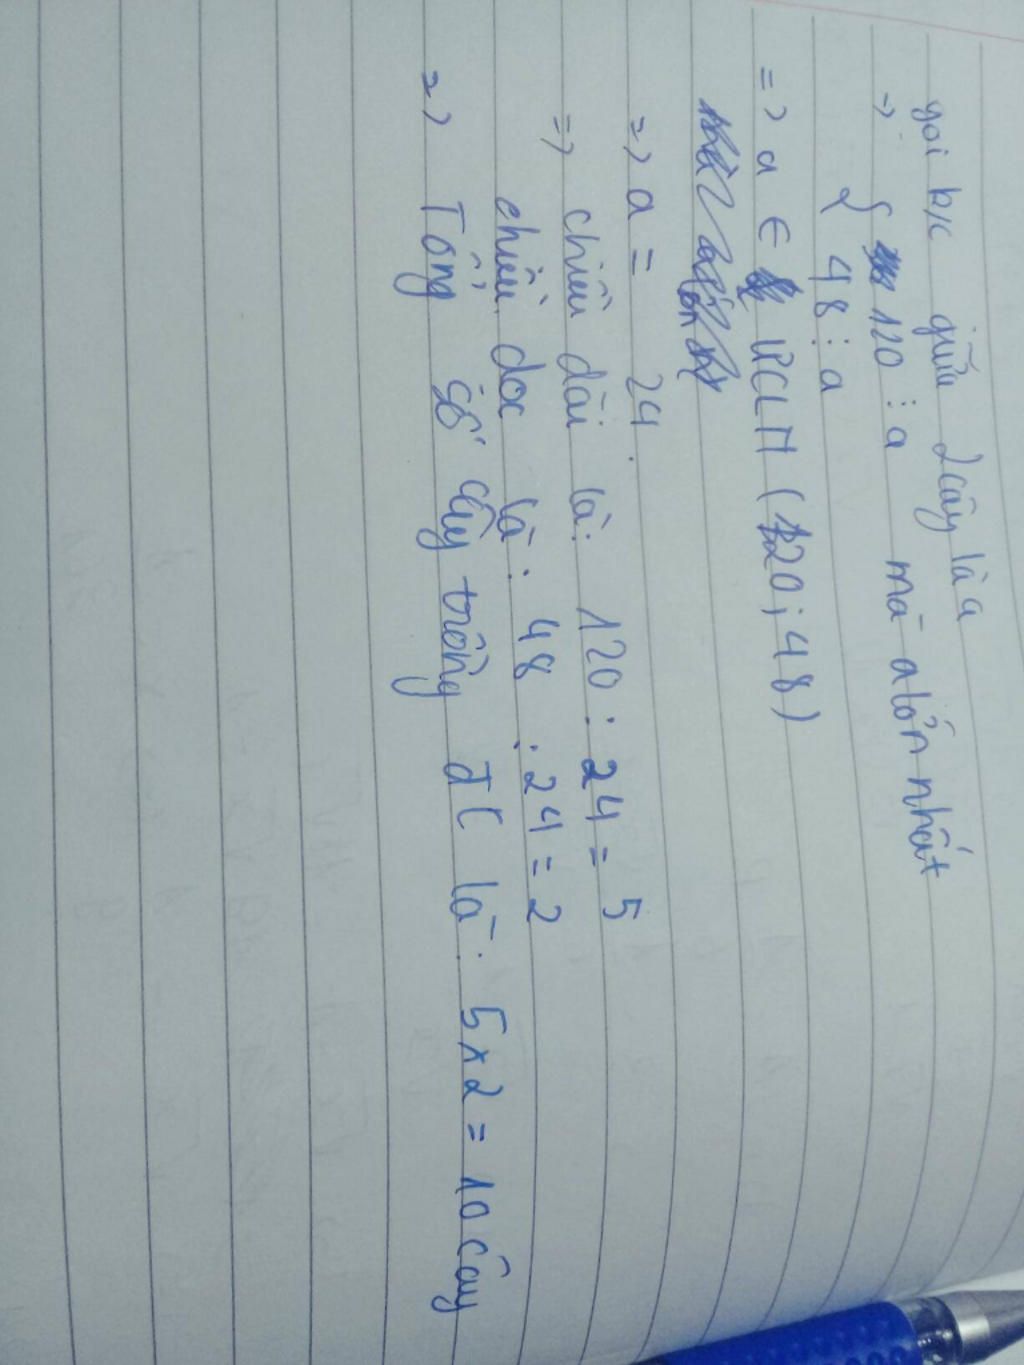 gọi k/c giữa 2 cây là a
=> { 120 ⋮ a mà a lớn nhất
{ 48 ⋮ a
=> a ∈ ƯCLN (120; 48)
=> a = 24.
=> chiều dài là: 120 : 24 = 5
chiều dọc là: 48 : 24 = 2
=> Tổng số cây trồng đc là: 5 x 2 = 10 cây